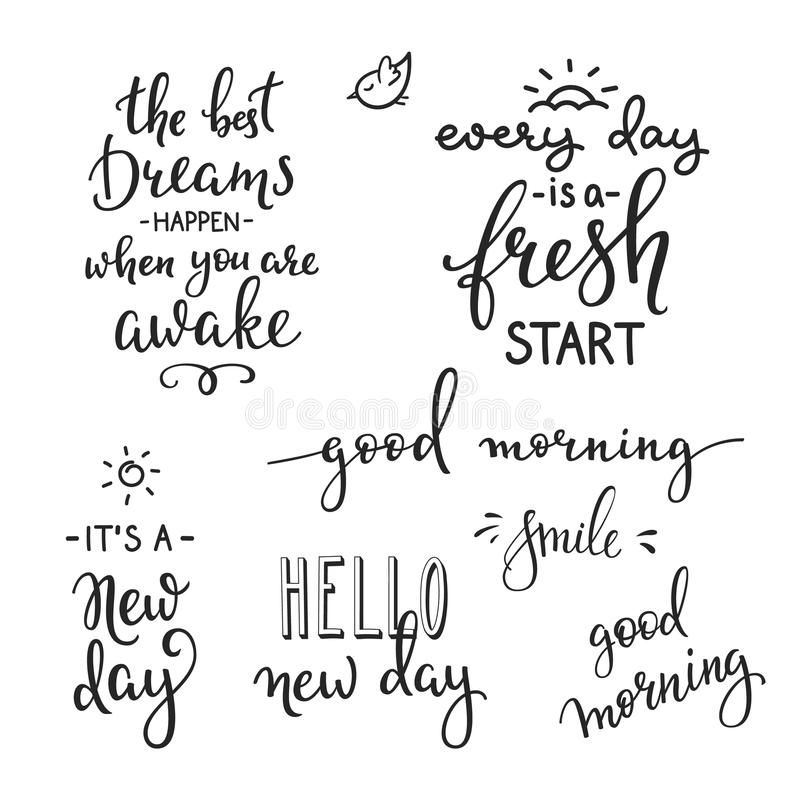 the best
Dreams
-HAPPEN-
when you are
awake
every day
-is a-
fresh
START
good morning
dreamstime
smile
-IT'S A-
New
day
HELLO
new day
good
morning